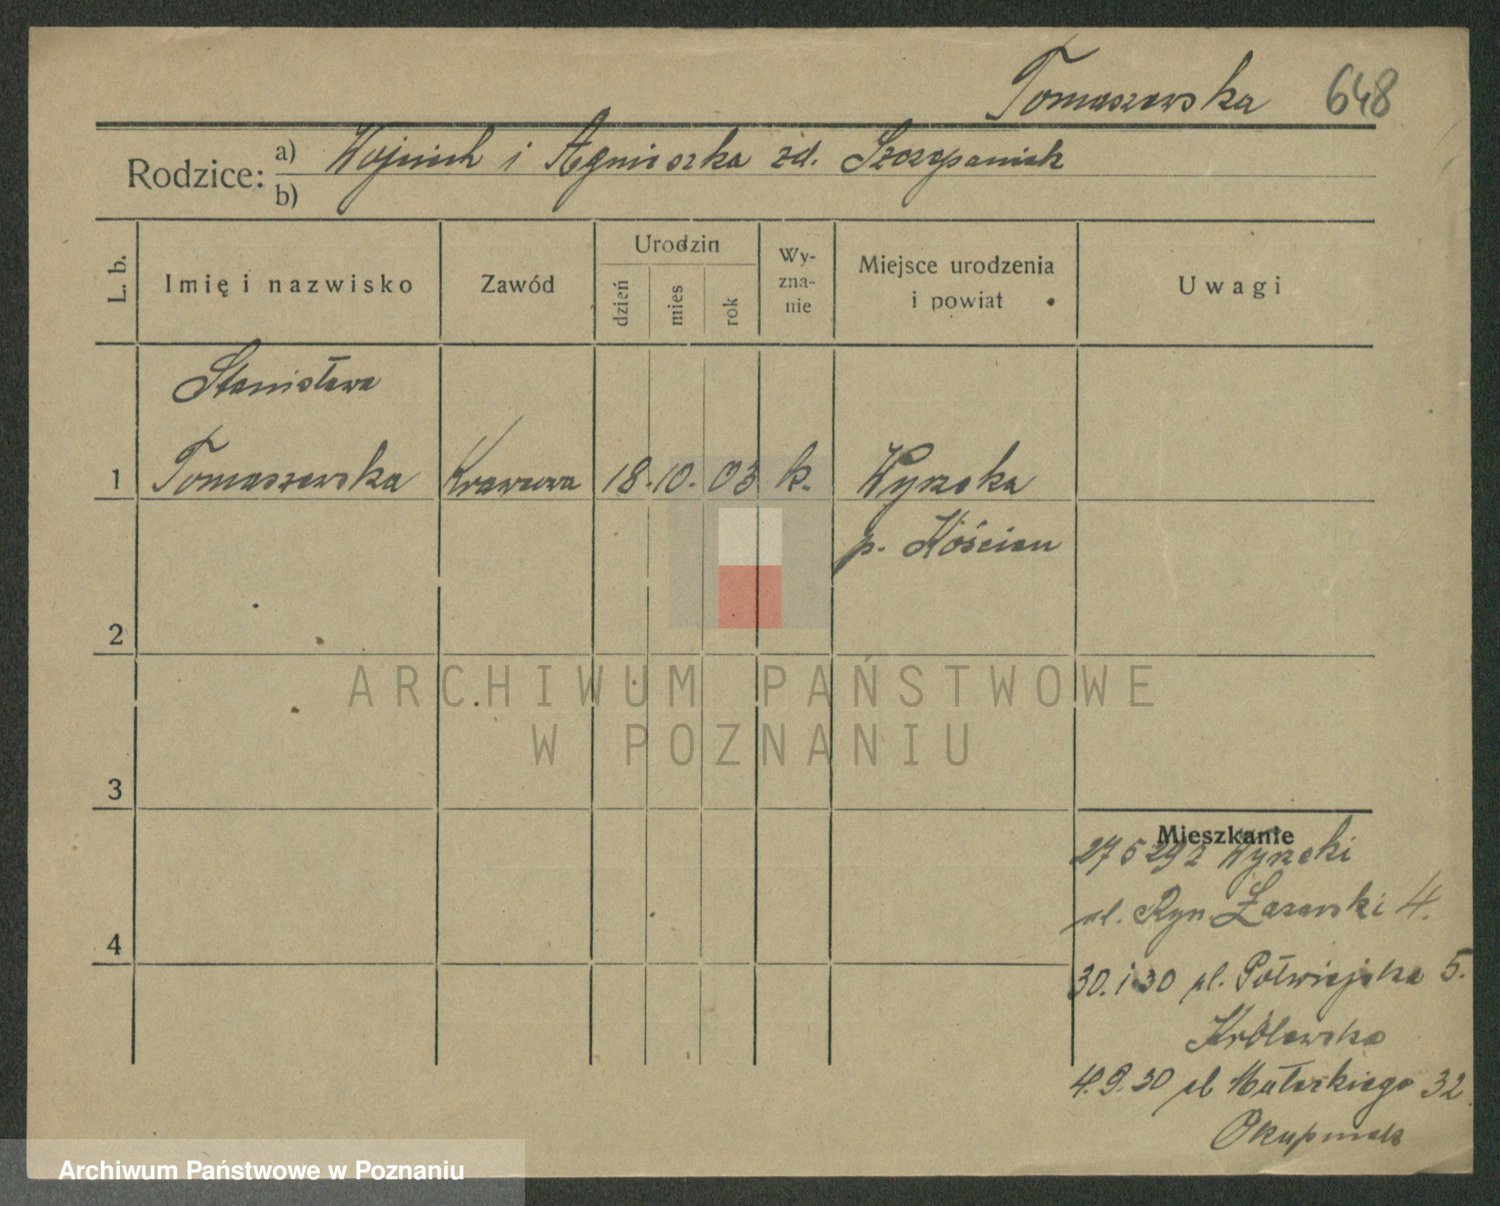 Tomaszewska 648
Rodzice: a) Wojciech i Agnieszka zd. Szczepaniak
b)
L. b. Imię i nazwisko Zawód Urodzin dzień mies rok Wy-zna-nie Miejsce urodzenia i powiat Uwagi
Stanisława
1 Tomaszewska Krawcowa 18. 10. 03 k. Wyrzeka
p. Kościan
2
ARCHIWUM PAŃSTWOWE
W POZNANIU
3
Mieszkanie
27 5 29 z Wyrzeki
ul. Ryn. Łazarski 4.
30. 1 30 ul. Półwiejska 5.
4
Królewska
4. 9. 30 ul Małeckiego 32
Archiwum Państwowe w Poznaniu